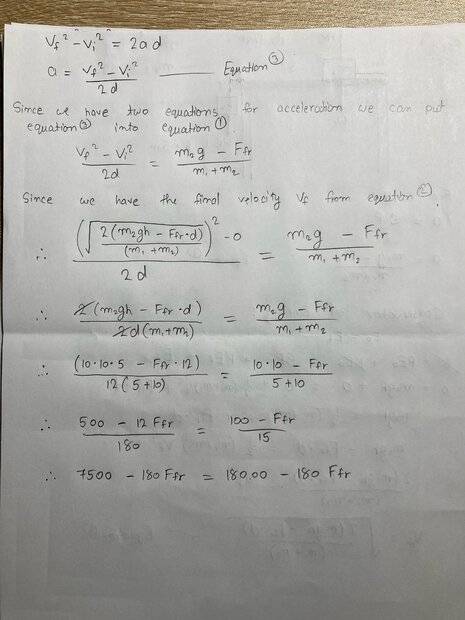 Vf² - Vi² = 2ad
a = Vf² - Vi² / 2d ——— Equation ③
Since we have two equations for acceleration we can put
equation ③ into equation ①
Vf² - Vi² / 2d = m₂g - Ffr / m₁ + m₂
Since we have the final velocity Vf from equation ②,
∴ (√(2(m₂gh - Ffr·d) / (m₁ + m₂)))² - 0 / 2d = m₂g - Ffr / m₁ + m₂
∴ 2(m₂gh - Ffr·d) / 2d(m₁ + m₂) = m₂g - Ffr / m₁ + m₂
∴ (10·10·5 - Ffr·12) / 12(5+10) = 10·10 - Ffr / 5+10
∴ 500 - 12Ffr / 180 = 100 - Ffr / 15
∴ 7500 - 180Ffr = 180.00 - 180Ffr